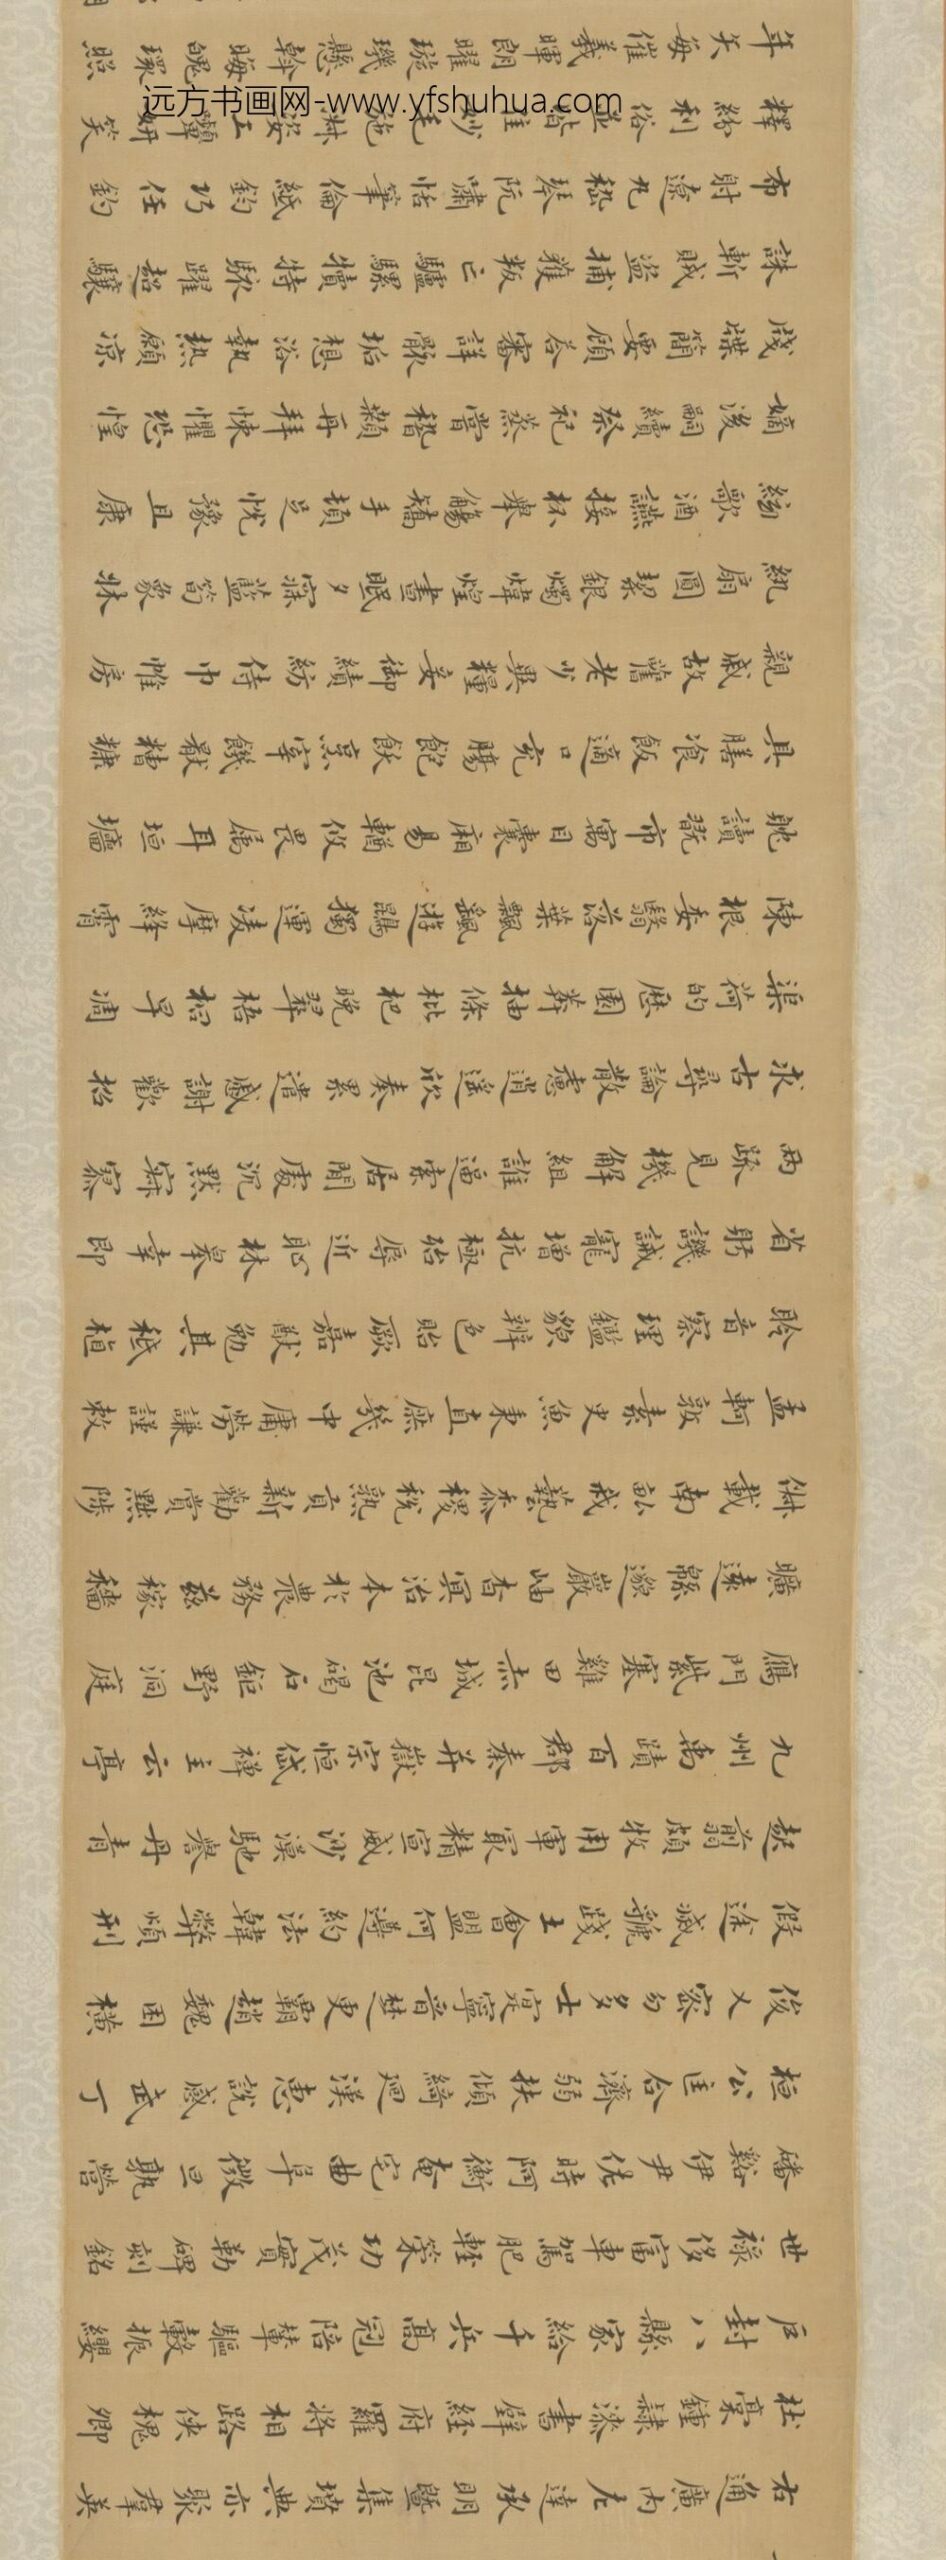 右通廣內左達承明既集墳典亦聚羣英
杜稾鍾隸漆書壁經府羅將相路俠槐卿
戶封八縣家給千兵高冠陪輦驅轂振纓
世祿侈富車駕肥輕策功茂實勒碑刻銘
磻谿伊尹佐時阿衡奄宅曲阜微旦孰營
桓公匡合濟弱扶傾綺迴漢惠說感武丁
俊乂密勿多士寔寧晉楚更霸趙魏困橫
假途滅虢踐土會盟何遵約法韓弊煩刑
起翦頗牧用軍最精宣威沙漠馳譽丹青
九州禹蹟百郡秦并嶽宗恒岱禪主云亭
鴈門紫塞雞田赤城昆池碣石鉅野洞庭
曠遠緜邈巖岫杳冥治本於農務茲稼穡
俶載南畝我藝黍稷稅熟貢新勸賞黜陟
孟軻敦素史魚秉直庶幾中庸勞謙謹敕
聆音察理鑑貌辨色貽厥嘉猷勉其祗植
省躬譏誡寵增抗極殆辱近恥林皋幸即
兩疏見機解組誰逼索居閒處沉默寂寥
求古尋論散慮逍遙欣奏累遣慼謝歡招
渠荷的歷園莽抽條枇杷晚翠梧桐早凋
陳根委翳落葉飄颻遊鵾獨運凌摩絳霄
耽讀翫市寓目囊箱易輶攸畏屬耳垣牆
具膳飡飯適口充腸飽飫烹宰饑厭糟糠
親戚故舊老少異糧妾御績紡侍巾帷房
紈扇圓絜銀燭煒煌晝眠夕寐藍筍象牀
絃歌酒讌接杯舉觴矯手頓足悅豫且康
嫡後嗣續祭祀蒸嘗稽顙再拜悚懼恐惶
牋牒簡要顧答審詳骸垢想浴執熱願涼
誅斬賊盜捕獲叛亡驢騾犢特駭躍超驤
布射遼丸嵇琴阮嘯恬筆倫紙鈞巧任釣
釋紛利俗並皆佳妙毛施淑姿工顰妍笑
年矢每催羲暉朗曜璇璣懸斡晦魄環照
远方书画网-www.yfshuhua.com